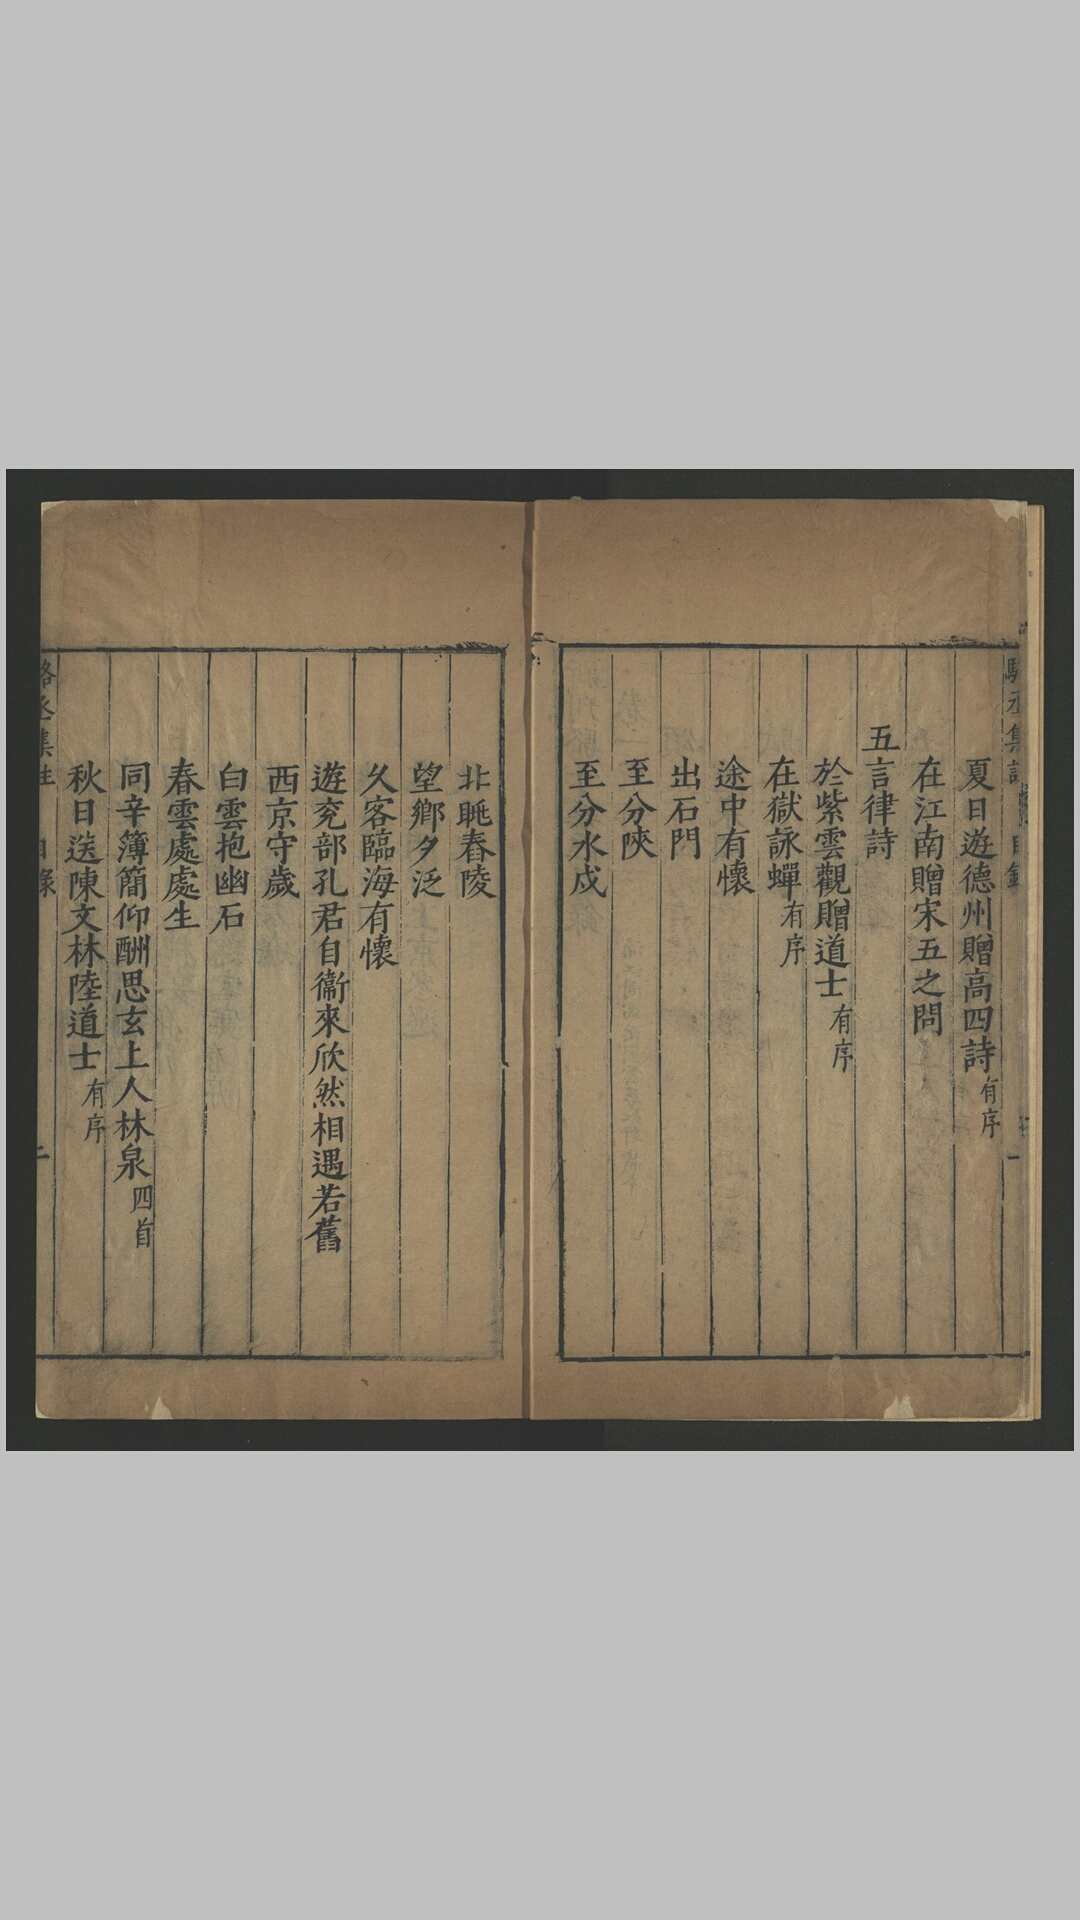 夏日遊德州贈高四詩有序
在江南贈宋五之問
五言律詩
於紫雲觀贈道士有序
在獄詠蟬有序
途中有懷
出石門
至分陜
至分水戍
北眺舂陵
望鄉夕泛
久客臨海有懷
遊兖部孔君自衞來欣然相遇若舊
西京守歲
白雲抱幽石
春雲處處生
同辛簿簡仰酬思玄上人林泉四首
秋日送陳文林陸道士有序